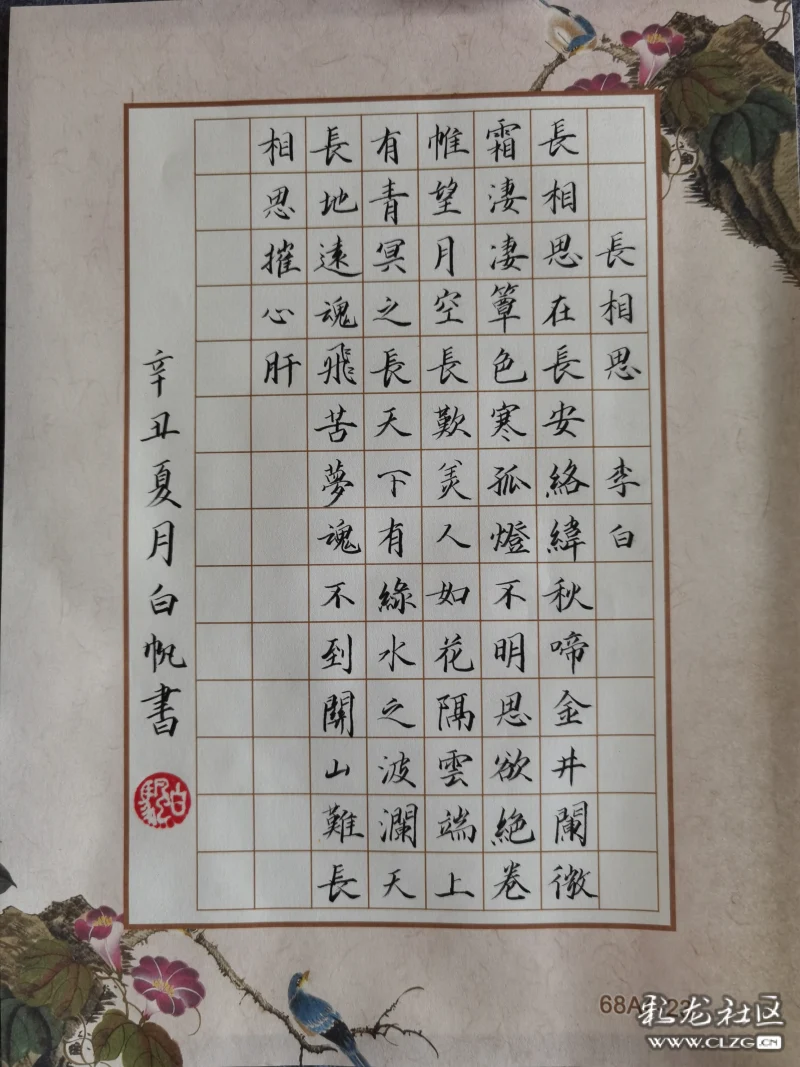 長相思 李白
長相思在長安絡緯秋啼金井闌微
霜淒淒簟色寒孤燈不明思欲絶卷
帷望月空長歎美人如花隔雲端上
有青冥之長天下有綠水之波瀾天
長地遠魂飛苦夢魂不到關山難長
相思摧心肝
辛丑夏月白帆書
68A
彩龙社区
WWW.CLZG.CN